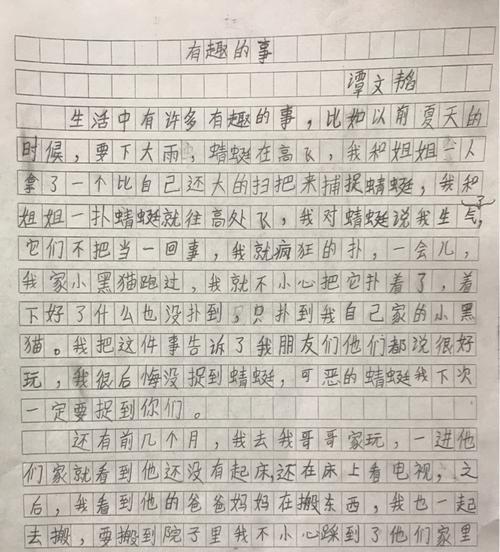 有趣的事
谭文韬
生活中有许多有趣的事，比如以前夏天的
时候，要下大雨，蜻蜓在高飞，我和姐姐一人
拿了一个比自己还大的扫把来捕捉蜻蜓，我和
姐姐一扑蜻蜓就往高处飞，我对蜻蜓说我生气了，
它们不把当一回事，我就疯狂的扑，一会儿，
我家小黑猫跑过，我就不小心把它扑着了，着
下好了什么也没扑到，只扑到我自己家的小黑
猫。我把这件事告诉了我朋友们他们都说很好
玩，我很后悔没捉到蜻蜓，可恶的蜻蜓我下次
一定要捉到你们。
还有前几个月，我去我哥哥家玩，一进他
们家就看到他还没有起床，还在床上看电视，之
后，我看到他的爸爸妈妈在搬东西，我也一起
去搬，要搬到院子里我不小心踩到了他们家里